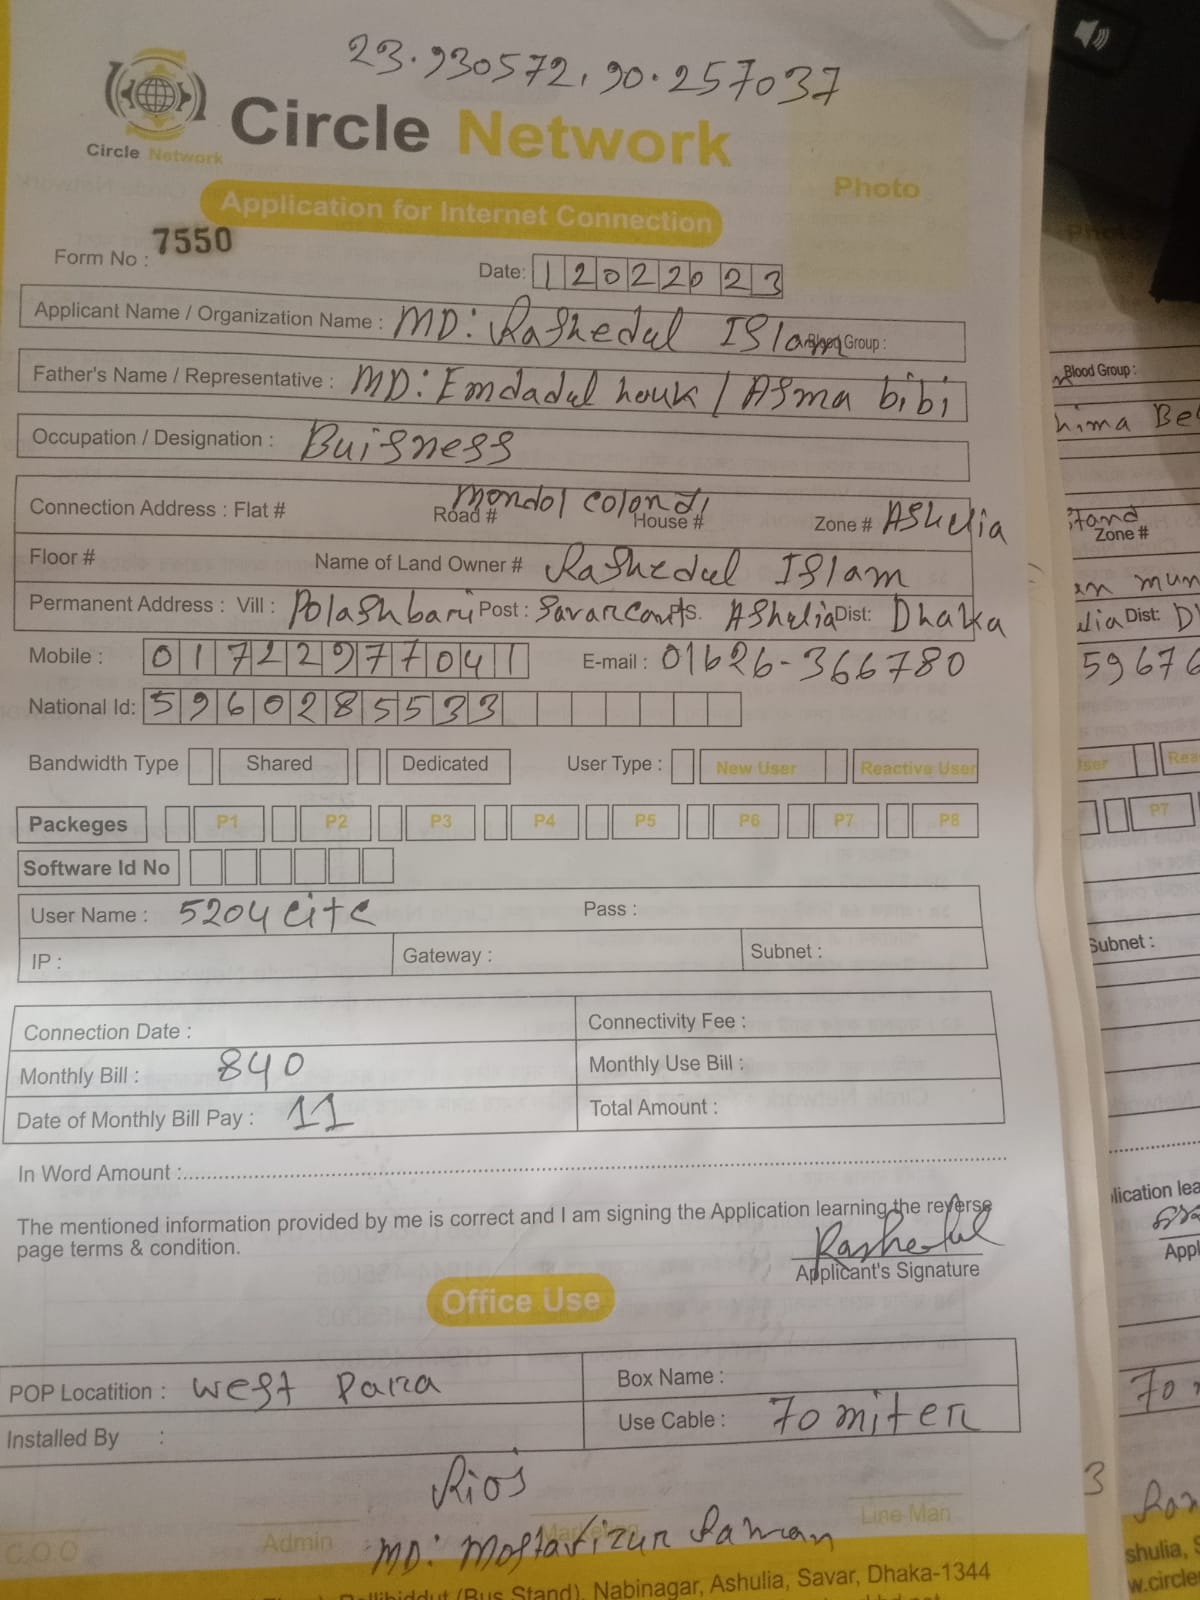 23.930572, 90.257037
Circle Network
Circle Network
Photo
Application for Internet Connection
Form No : 7550
Date: 12022023
Applicant Name / Organization Name : MD: Rashedul ISlam Blood Group :
Father's Name / Representative : MD: Emdadul houk / ASma bibi
Occupation / Designation : BuiSness
Connection Address : Flat # Road # Mondol colondi House # Zone # AShulia
Floor # Name of Land Owner # RaShedul ISlam
Permanent Address : Vill : Polashbari Post : Savarcants. AShulia Dist: Dhaka
Mobile : 01722977041 E-mail : 01626-366780
National Id: 5960285533
Bandwidth Type Shared Dedicated User Type : New User Reactive User
Packeges P1 P2 P3 P4 P5 P6 P7 P8
Software Id No
User Name : 5204 citc Pass :
IP : Gateway : Subnet :
Connection Date : Connectivity Fee :
Monthly Bill : 840 Monthly Use Bill :
Date of Monthly Bill Pay : 11 Total Amount :
In Word Amount :
The mentioned information provided by me is correct and I am signing the Application learning the reverse
page terms & condition.
Rashedul
Applicant's Signature
Office Use
POP Locatition : weSt para Box Name :
Installed By : Use Cable : 70 miter
Rios
C.O.O Admin Marketing Line Man
MD: MoStafizur Rahman
(Bus Stand), Nabinagar, Ashulia, Savar, Dhaka-1344
Blood Group :
hima Be
Stand
Zone #
an mun
ulia Dist: D
59676
P7
Subnet :
lication lea
Appl
70
3
shulia, S
w.circle